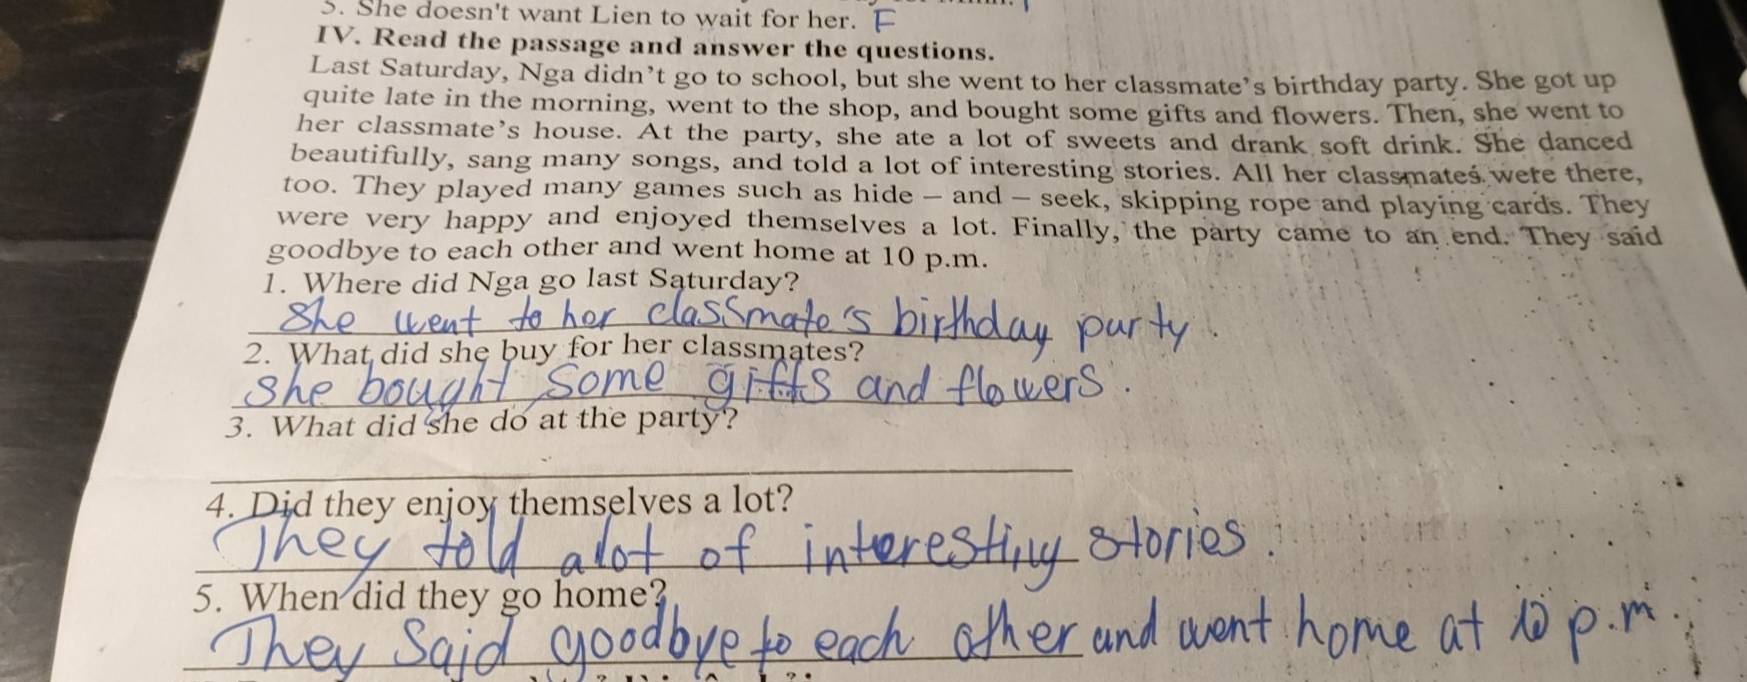 5. She doesn't want Lien to wait for her. F
IV. Read the passage and answer the questions.
Last Saturday, Nga didn't go to school, but she went to her classmate's birthday party. She got up
quite late in the morning, went to the shop, and bought some gifts and flowers. Then, she went to
her classmate's house. At the party, she ate a lot of sweets and drank soft drink. She danced
beautifully, sang many songs, and told a lot of interesting stories. All her classmates were there,
too. They played many games such as hide – and – seek, skipping rope and playing cards. They
were very happy and enjoyed themselves a lot. Finally, the party came to an end. They said
goodbye to each other and went home at 10 p.m.
1. Where did Nga go last Saturday?
She went to her classmate's birthday party.
2. What did she buy for her classmates?
She bought some gifts and flowers.
3. What did she do at the party?
4. Did they enjoy themselves a lot?
They told alot of interesting stories.
5. When did they go home?
They Said goodbye to each other and went home at 10 p.m.